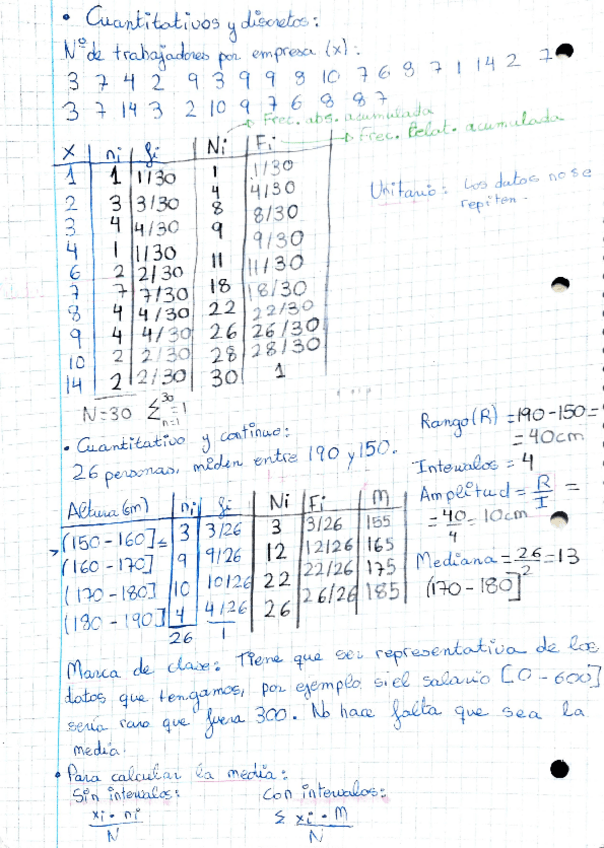 • Cuantitativos y discretos:
Nº de trabajadores por empresa (x):
3 7 4 2 9 3 9 9 8 10 7 6 8 7 1 14 2 7
3 7 14 3 2 10 9 7 6 8 8 7
→ Frec. abs. acumulada
→ Frec. Relat. acumulada
x | ni | fi | Ni | Fi
1 | 1 | 1/30 | 1 | 1/30
2 | 3 | 3/30 | 4 | 4/30
3 | 4 | 4/30 | 8 | 8/30
4 | 1 | 1/30 | 9 | 9/30
6 | 2 | 2/30 | 11 | 11/30
7 | 7 | 7/30 | 18 | 18/30
8 | 4 | 4/30 | 22 | 22/30
9 | 4 | 4/30 | 26 | 26/30
10 | 2 | 2/30 | 28 | 28/30
14 | 2 | 2/30 | 30 | 1
N=30 Σ 30 n=1 =1
Unitario: Los datos no se
repiten.
• Cuantitativo y continuo:
26 personas, miden entre 190 y 150.
Altura (cm) | ni | fi | Ni | Fi | M
(150-160] | 3 | 3/26 | 3 | 3/26 | 155
(160-170] | 9 | 9/26 | 12 | 12/26 | 165
(170-180] | 10 | 10/26 | 22 | 22/26 | 175
(180-190] | 4 | 4/26 | 26 | 26/26 | 185
26 1
Rango (R) = 190-150 =
= 40cm
Intervalos = 4
Amplitud = R/I =
= 40/4 = 10cm
Mediana = 26/2 = 13
(170-180]
Marca de clase: Tiene que ser representativa de los
datos que tengamos, por ejemplo si el salario [0-600]
sería raro que fuera 300. No hace falta que sea la
media.
• Para calcular la media:
Sin intervalos: Con intervalos:
xi · ni / N Σ xi · M / N